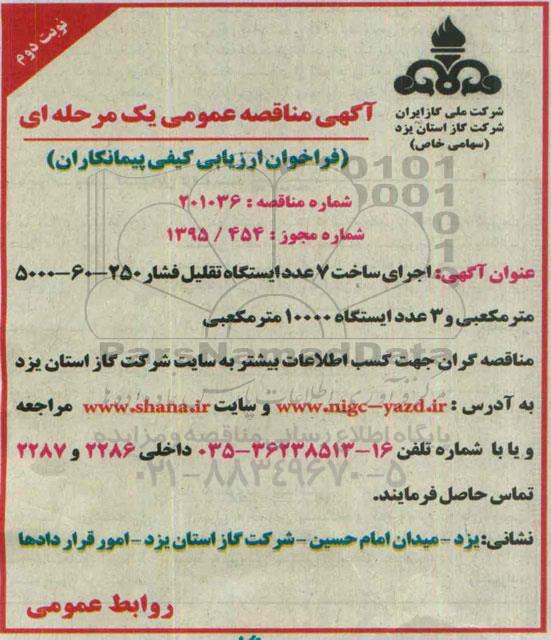 نوبت دوم
شرکت ملی گاز ایران
شرکت گاز استان یزد
(سهامی خاص)
آگهی مناقصه عمومی یک مرحله ای
(فراخوان ارزیابی کیفی پیمانکاران)
شماره مناقصه : ۲۰۱۰۳۶
شماره مجوز : ۴۵۴ / ۱۳۹۵
عنوان آگهی: اجرای ساخت ۷ عدد ایستگاه تقلیل فشار ۲۵۰-۶۰-۵۰۰۰
مترمکعبی و ۳ عدد ایستگاه ۱۰۰۰۰ مترمکعبی
مناقصه گران جهت کسب اطلاعات بیشتر به سایت شرکت گاز استان یزد
به آدرس : www.nigc-yazd.ir و سایت www.shana.ir مراجعه
و یا با شماره تلفن ۱۶-۳۶۲۳۸۵۱۳-۰۳۵ داخلی ۲۲۸۶ و ۲۲۸۷
تماس حاصل فرمایند.
نشانی: یزد - میدان امام حسین - شرکت گاز استان یزد - امور قراردادها
روابط عمومی
ParsNamadData
پایگاه اطلاع رسانی مناقصه و مزایده
۰۲۱-۸۸۳۴۹۶۷۰-۵